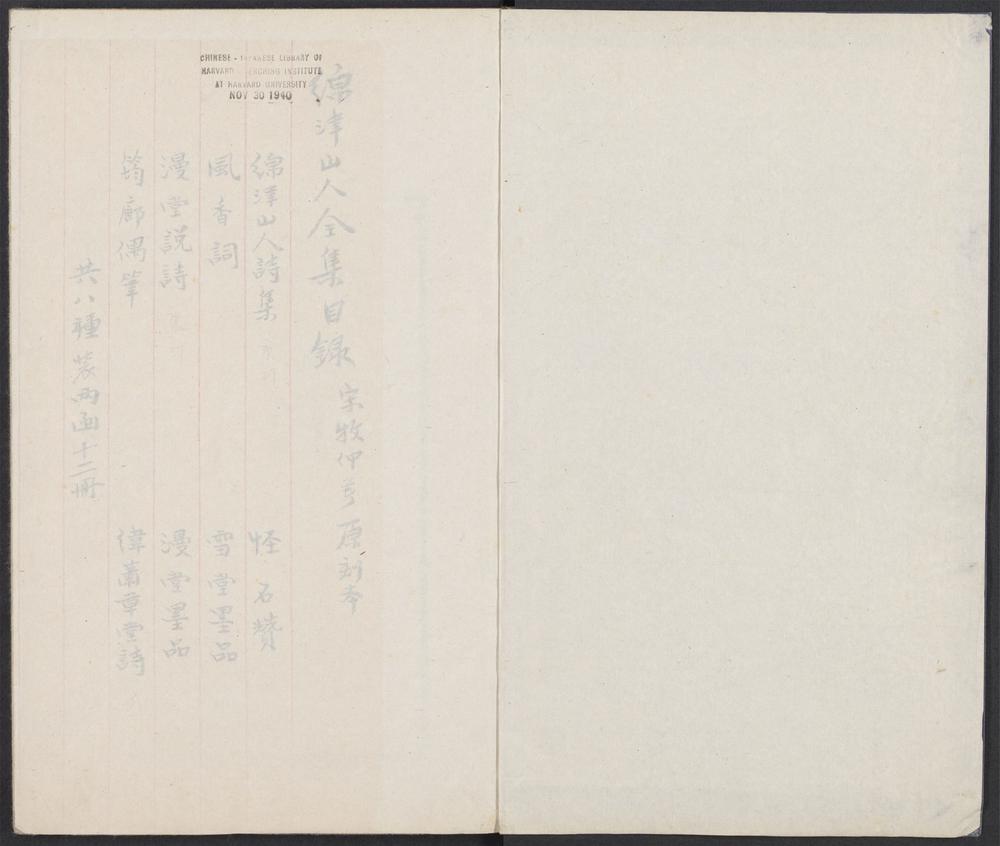 CHINESE - JAPANESE LIBRARY OF
HARVARD - YENCHING INSTITUTE
AT HARVARD UNIVERSITY
NOV 30 1940
綿津山人全集目録 宋牧仲 原刻本
綿津山人詩集
怪石贊
風香詞
雪堂墨品
漫堂説詩
漫堂墨品
筠廊偶筆
緯蕭草堂詩
共八種裝兩函十二冊